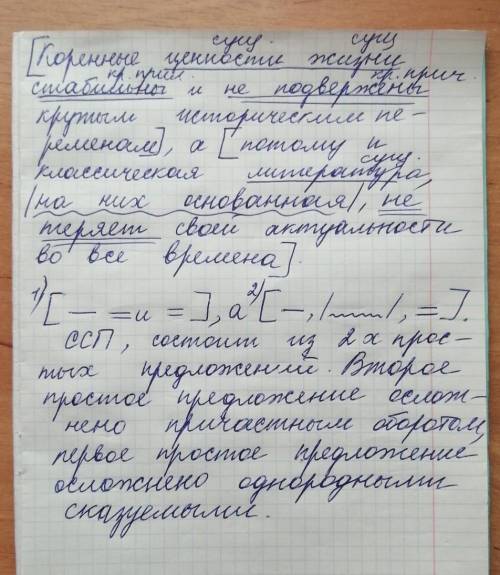 сущ. сущ
[Коренные ценности жизни
кр.прил кр.прич.
стабильны и не подвержены
крутым историческим пе-
ременам], а [потому и
сущ.
классическая литература,
/на них основанная/, не
теряет своей актуальности
во все времена].
1) [— = и =], а 2) [—, /﹏/, =].
ССП, состоит из 2х прос-
тых предложений. Второе
простое предложение ослож-
нено причастным оборотом,
первое простое предложение
осложнено однородными
сказуемыми.